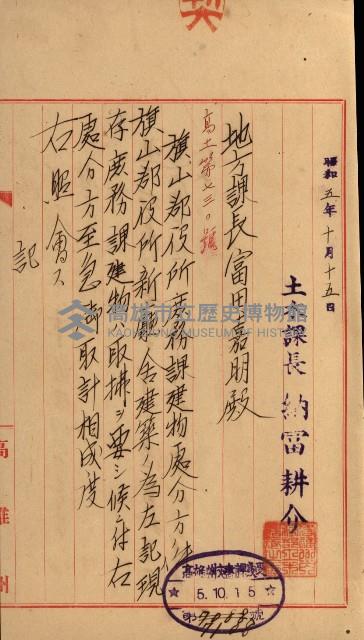 昭和五年十月十五日
土木課長 納富耕介
地方課長富田嘉明殿
高土第七三〇號
旗山郡役所庶務課建物處分方
旗山郡役所新廳舍建築ノ為左記現
存庶務課建物取拂ヲ要シ候ニ付右
處分方至急御取計相成度
右照會ス
記
高雄州
5.10.15
高雄市立歷史博物館
KAOHSIUNG MUSEUM OF HISTORY